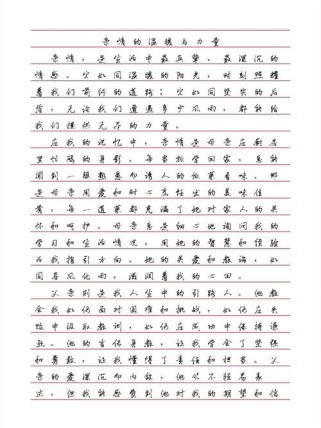 亲情的温暖与力量
亲情,是生活中最真挚、最深沉的
情感。它如同温暖的阳光,时刻照耀
着我们前行的道路;它如同坚实的后
盾,无论我们遭遇多少风雨,都能给
我们提供无尽的力量。
在我的记忆中,亲情是母亲在厨房
里忙碌的身影。每当放学回家,总能
闻到一股熟悉而诱人的饭菜香味。那
是母亲用爱和耐心烹饪出的美味佳
肴,每一道菜都充满了她对家人的关
怀和呵护。母亲总是细心地询问我的
学习和生活情况,用她的智慧和经验
为我指引方向。她的关爱和教诲,如
同春风化雨,滋润着我的心田。
父亲则是我人生中的引路人。他教
会我如何面对困难和挑战,如何在失
败中汲取教训,如何在成功中保持谦
逊。他的言传身教,让我学会了坚强
和勇敢,让我懂得了责任和担当。父
亲的爱深沉而内敛,他从不轻易表
达,但我能感受到他对我的期望和信